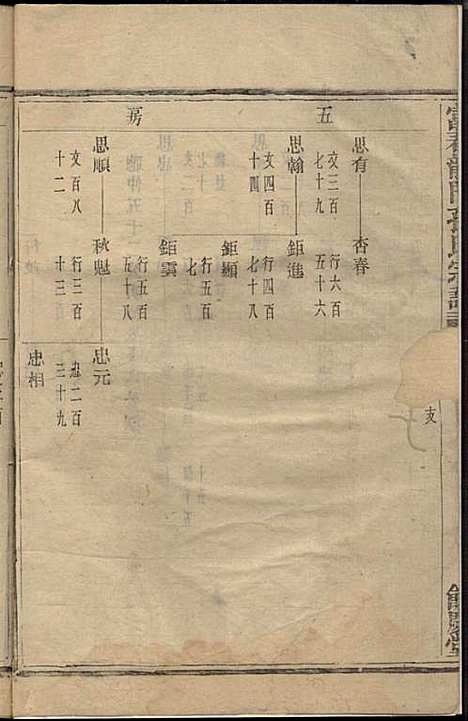 五
房
思有
文三百
七十九
杏春
行六百
五十六
思翰
文四百
十四
鉅進
行四百
七十八
鉅顯
行五百
七
鉅雲
行五百
五十八
思順
文百八
十二
秋魁
行三百
十三
忠元
忠二百
三十九
忠相
富春龍門孫氏宗譜
支